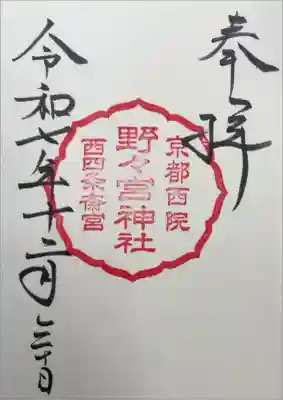 奉拝
京都西院
野々宮神社
西四条斎宮
令和七年十二月三十日